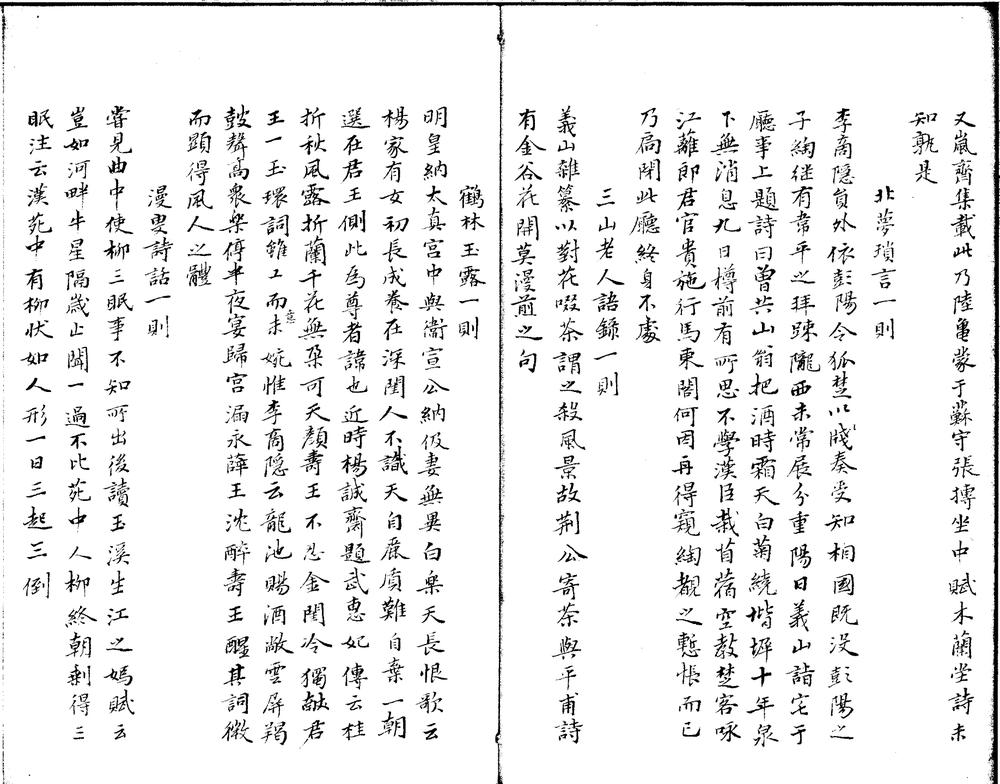 又嵐齋集載此乃陸龜蒙于蘇守張摶坐中賦木蘭堂詩未
知孰是
北夢瑣言一則
李商隐員外依彭陽令狐楚以牋奏受知相國既没彭陽之
子綯继有韋平之拜踈隴西未常展分重陽日義山詣宅于
廳事上題詩曰曽共山翁把酒時霜天白菊繞堦墀十年泉
下無消息九日樽前有所思不學漢臣栽苜蓿空敎楚客咏
江蘺郎君官貴施行馬東閤何因再得窺綯覩之慙悵而已
乃扃閉此廳終身不處
三山老人語錄一則
義山雜纂以對花啜茶謂之殺風景故荆公寄茶與平甫詩
有金谷花開莫漫煎之句
鶴林玉露一則
明皇納太真宫中與衞宣公納伋妻無異白樂天長恨歌云
楊家有女初長成養在深閨人不識天自麗質難自棄一朝
選在君王側此為尊者諱也近時楊誠齋題武惠妃傳云桂
折秋風露折蘭千花無朶可天顏壽王不忍金閨冷獨献君
王一玉環詞雖工而未意婉惟李商隐云龍池賜酒敞雲屏羯
皷聲高衆樂停半夜宴歸宫漏永薛王沈醉壽王醒其詞微
而顕得風人之體
漫叟詩話一則
嘗見曲中使柳三眠事不知所出後讀玉溪生江之嫣賦云
豈如河畔牛星隔歳止聞一過不比苑中人柳終朝剩得三
眠注云漢苑中有柳状如人形一日三起三倒